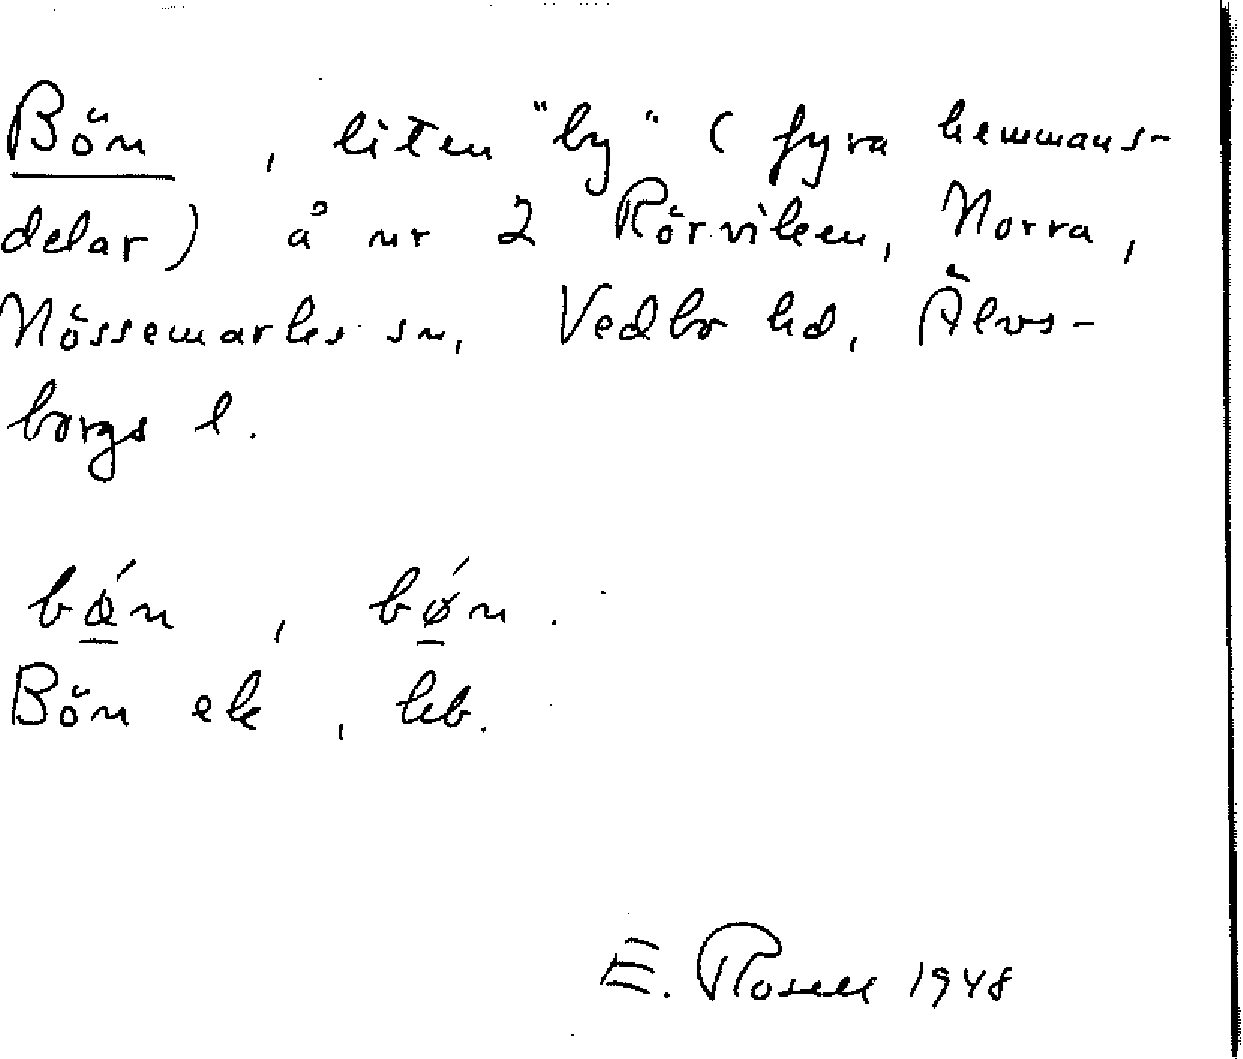 Bön, liten "by" (fyra hemmans-
delar) å nr 2 Rörviken, Norra,
Nössemarks sn, Vedbo hd, Älvs-
borgs l.
bǿn, bǿn.
Bön ek, kb.
E. Rosell 1948